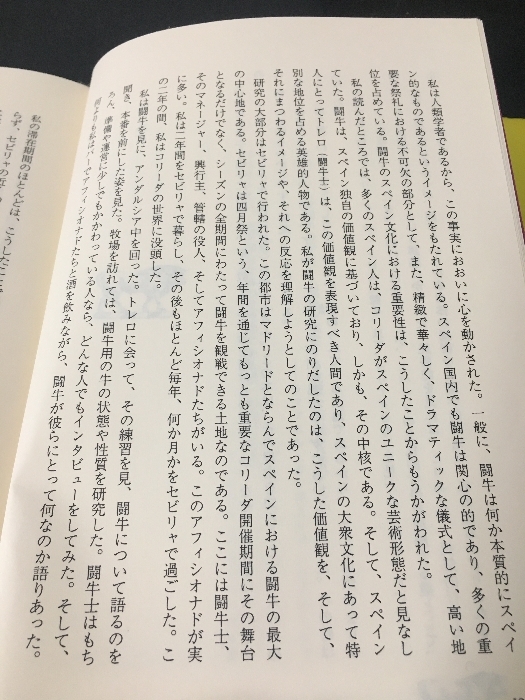 私は人類学者であるから、この事実におおいに心を動かされた。一般に、闘牛は何か本質的にスペイ
ン的なものであるというイメージをもたれている。スペイン国内でも闘牛は関心の的であり、多くの重
要な祭礼における不可欠の部分として、また、精緻で華々しく、ドラマティックな儀式として、高い地
位を占めている。闘牛のスペイン文化における重要性は、こうしたことからもうかがわれた。
私の読んだところでは、多くのスペイン人は、コリーダがスペインのユニークな芸術形態だと見なし
ていた。闘牛は、スペイン独自の価値観に基づいており、しかも、その中核である。そして、スペイン
人にとってトレロ（闘牛士）は、この価値観を表現すべき人間であり、スペインの大衆文化にあって特
別な地位を占める英雄的人物である。私が闘牛の研究にのりだしたのは、こうした価値観を、そして、
それにまつわるイメージや、それへの反応を理解しようとしてのことであった。
研究の大部分はセビリャで行われた。この都市はマドリードとならんでスペインにおける闘牛の最大
の中心地である。セビリャは四月祭という、年間を通じてもっとも重要なコリーダ開催期間にその舞台
となるだけでなく、シーズンの全期間にわたって闘牛を観戦できる土地なのである。ここには闘牛士、
そのマネージャー、興行主、管轄の役人、そしてアフィシオナドたちがいる。このアフィシオナドが実
に多い。私は二年間をセビリャで暮らし、その後もほとんど毎年、何か月かをセビリャで過ごした。こ
の二年の間、私はコリーダの世界に没頭した。
私は闘牛を見に、アンダルシア中を回った。トレロに会って、その練習を見、闘牛について語るのを
聞き、本番を前にした姿を見た。牧場を訪れては、闘牛用の牛の状態や性質を研究した。闘牛士はもち
ろん、準備や運営に少しでもかかわっている人なら、どんな人でもインタビューをしてみた。そして、
何よりも私はバーでアフィシオナドたちと酒を飲みながら、闘牛が彼らにとって何なのか語りあった。
私の滞在期間のほとんどは、こうしたことで
らず、セビリャの近